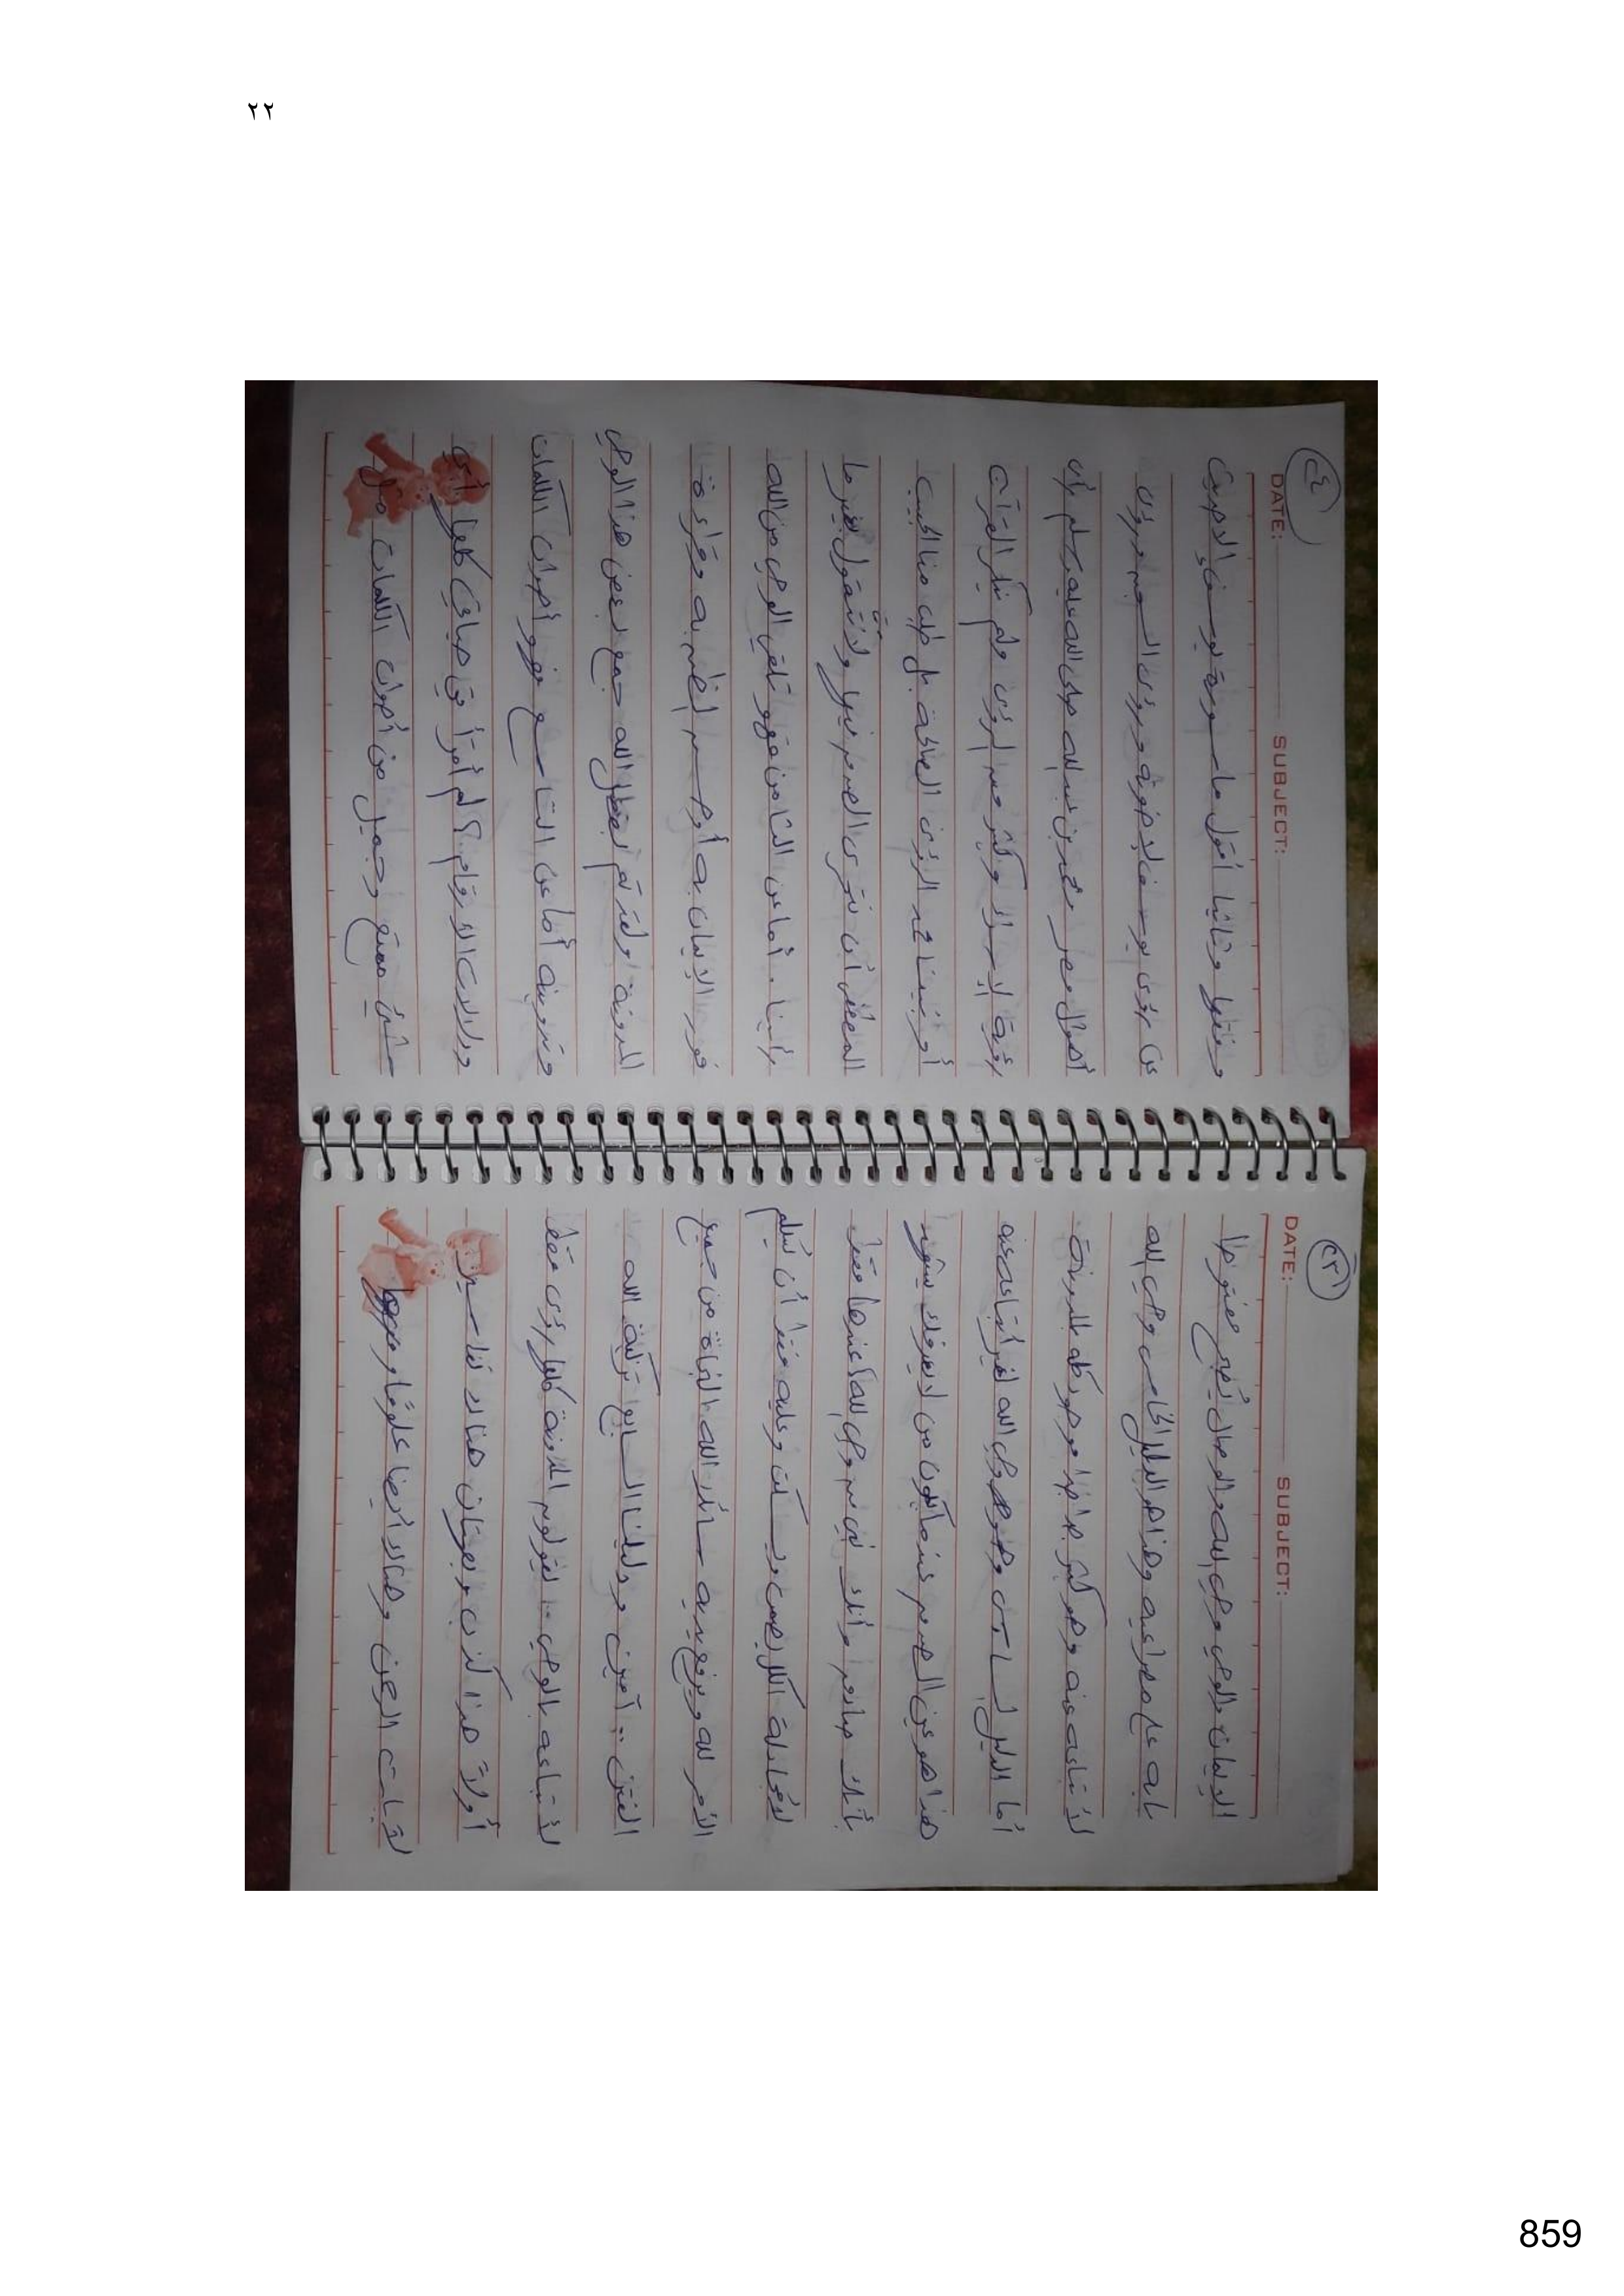 ٢٢
(٢٣)
DATE: SUBJECT:
الإيمان بالوحي وحي الله والدجال يدعي
بابه على مصراعيه وهذا هو الدليل الخامس وحي الله
لأتباعه عنه وهو كثير جدا موجود كله بالمدونة
أما الدليل السادس وهو وحي الله لغير أتباعه عنه
هذا هو عين عندما يكون من لا يعرفك يشهد
بأنك صادق وأنك نبي وحي الله عندها فقط
لا مجادلة الكل يصمت ويسكت وعليه فقط أن يسلم
الأمر لله ويرفع يديه سائلا الله النجاة من جميع
الفتن .. آمين ودليلنا السابع تزكية الله
لأتباعه بالوحي .. لقولهم المدونة كلها رؤى فقط
أولاً هذا كذب وبهتان هناك تفاسير
لآيات وهناك أيضا علوما وفقها
(٢٤)
DATE: SUBJECT:
وفقها وثانيا أقول ما سورة يوسف إلا حديث
عن رؤى يوسف لإخوته ورؤى السجن ورؤى
محمد بن عبدالله صلى الله عليه وسلم بأن
رؤية الإسراء ولم ينكر القرآن
أو نبينا محمد الرؤى الصالحة بل طلب منا الحبيب
المصطفى أن نتحرى الصدق فيها ولا نتقول بغير ما
رأينا . أما عن الثامن فهو تلقي الوحي من الله
فور الإيمان به أو وقراءة
المدونة ولقد تم بفضل الله جمع بعض هذا الوحي
وتدوينه أما عن التاسع فهو أصوات الكلمات
ودلالات الأرقام ؟ لم أقرأ في حياتي كلها أي
شئ ممتع وجميل من أصوات الكلمات مثل
859